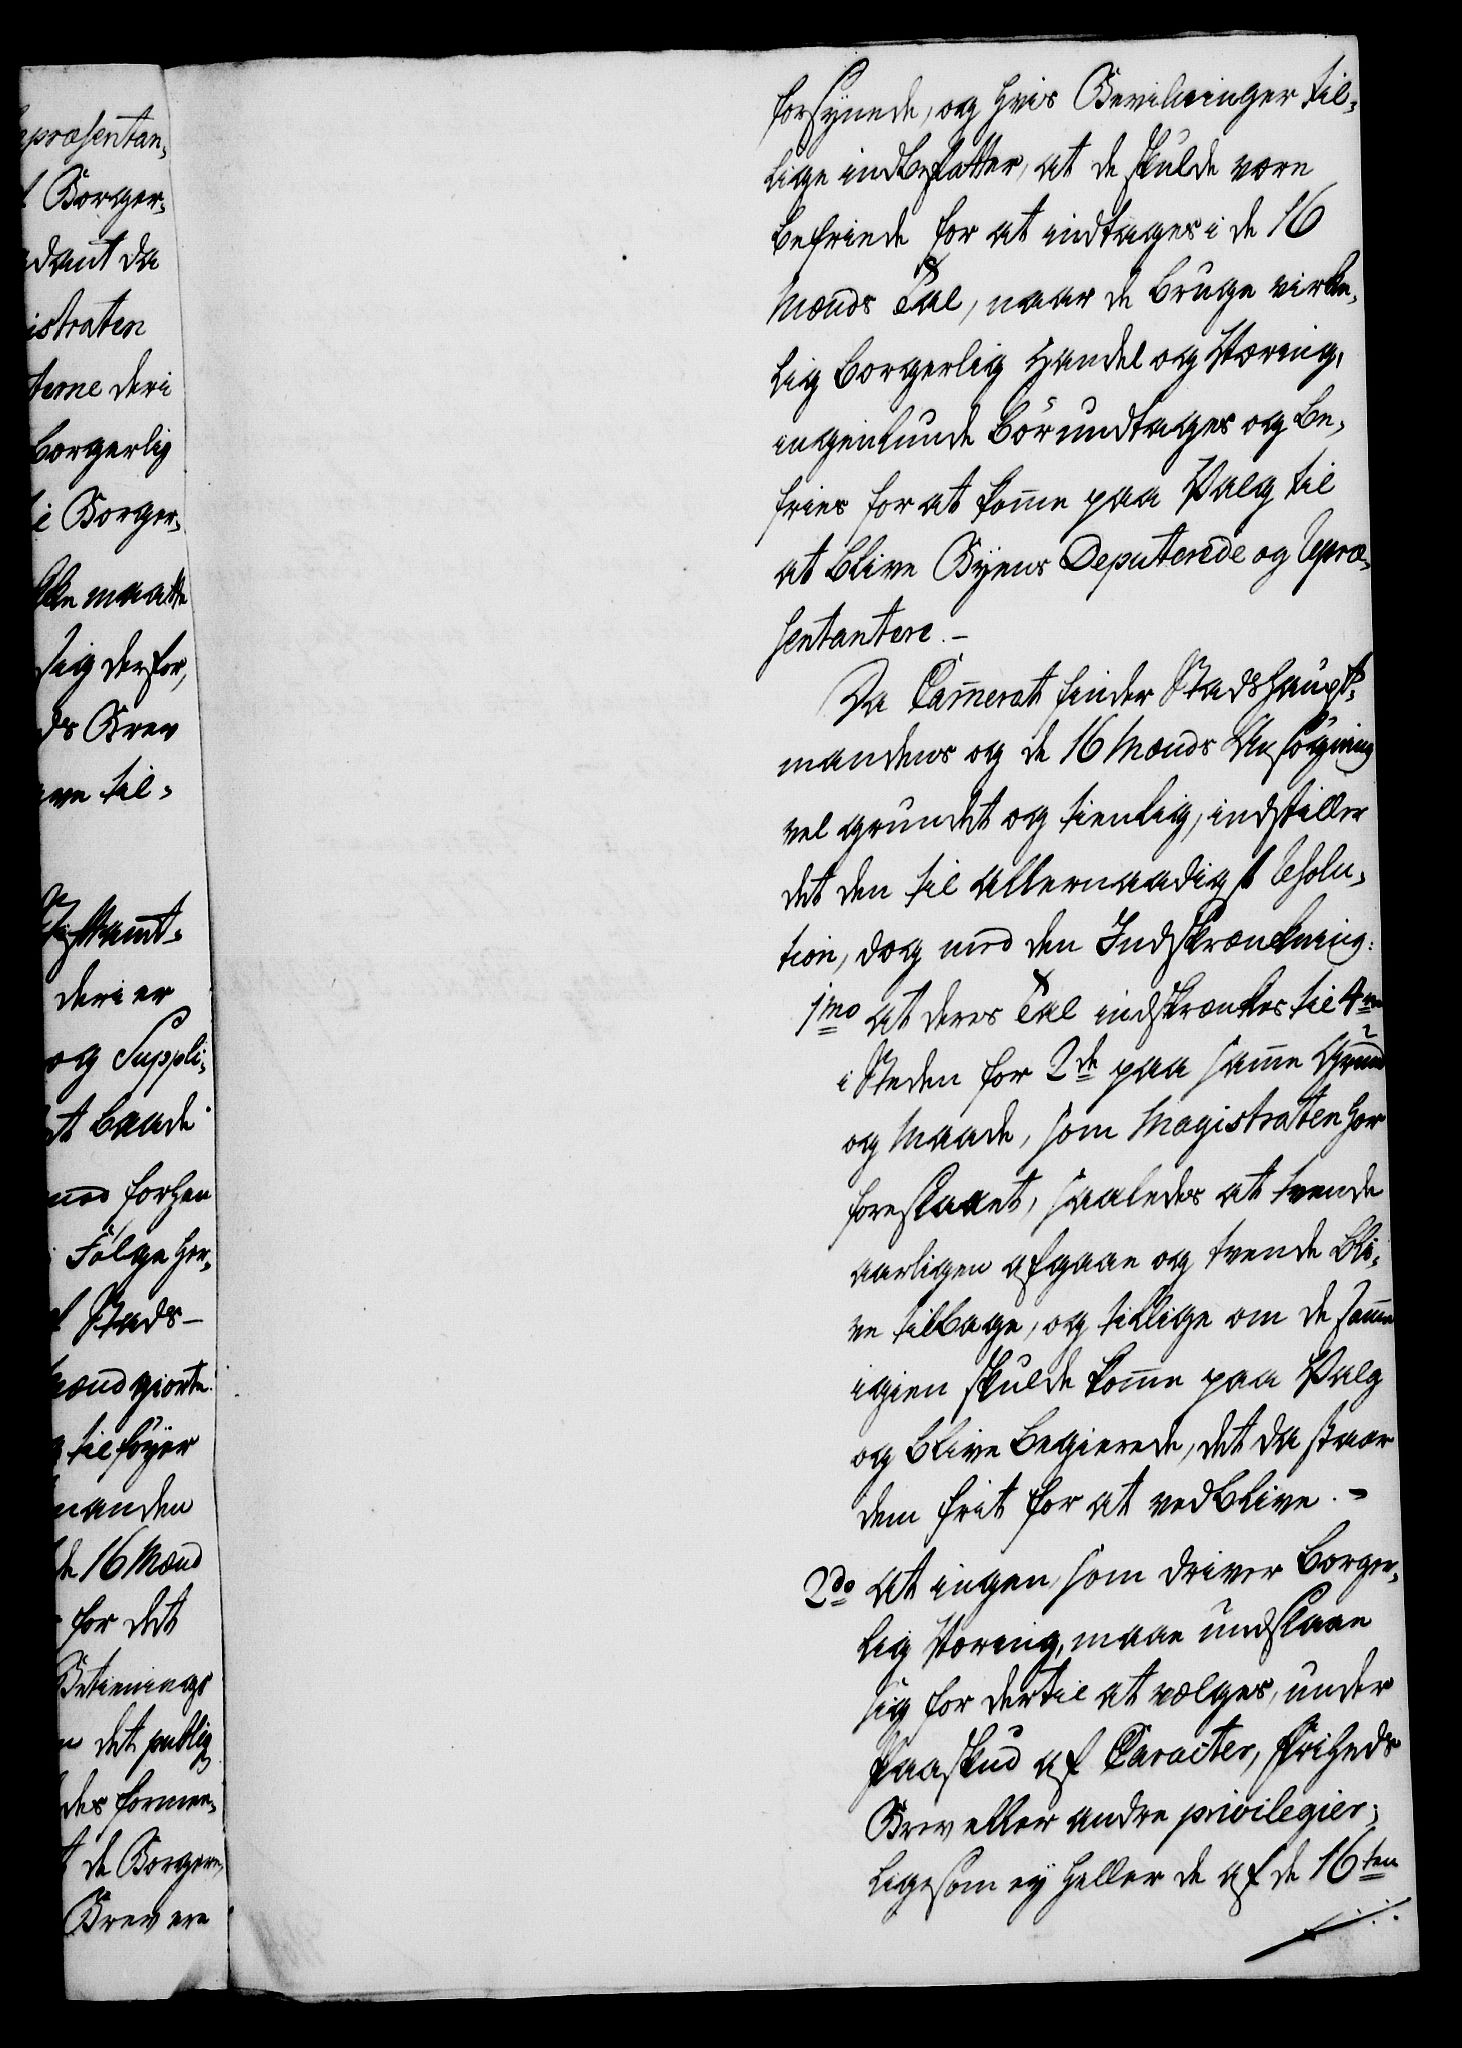 præsentan„
Borger„
dant da
istraten
terne deri
borgerlig
i Borger„
kke maatte
sig derfor,
ds Brev
ve til„
Stiftamt„
deri er
og Suppli„
t baade
med forhen
Følge her„
Stads-
mænd giorte
tilføyer
manden
de 16 Mænd
for det
Betienings
det publiq
des formee„
de Borgere,
Brev ere
forsynede, og hvis Bevilninger til„
lige indbefatter, at de skulde være
befriede for at indtages i de 16
Mænds Tal, naar de bruge virke„
lig borgerlig Handel og Næring,
ingenlunde bør undtages og be„
fries for at komme paa Valg til
at blive Byens Deputerede og Repræ„
sentantere.-
Da Cammeret finder Stadshaupt„
mandens og de 16 Mænds Ansøgning
vel grundet og tienlig, indstiller
det den til allernaadigst Resolu„
tion, dog med den Indskrænkning:
1mo at deres Tal indskrænkes til 4re
i Steden for 2de paa samme Grund
og Maade, som Magistraten har
foreslaaet, saaledes at tvende
aarligen afgaae og tvende bli„
ve tilbage, og tillige om de samme
igien skulde komme paa Valg
og blive begierede, det da staar
dem frit for at vedblive.-
2do at ingen, som driver borger„
lig Næring, maae undslaae
sig for dertil at vælges, under
Paaskud af Caracter, Friheds
Brev eller andre privilegier;
ligesom ey heller de af de 16ten